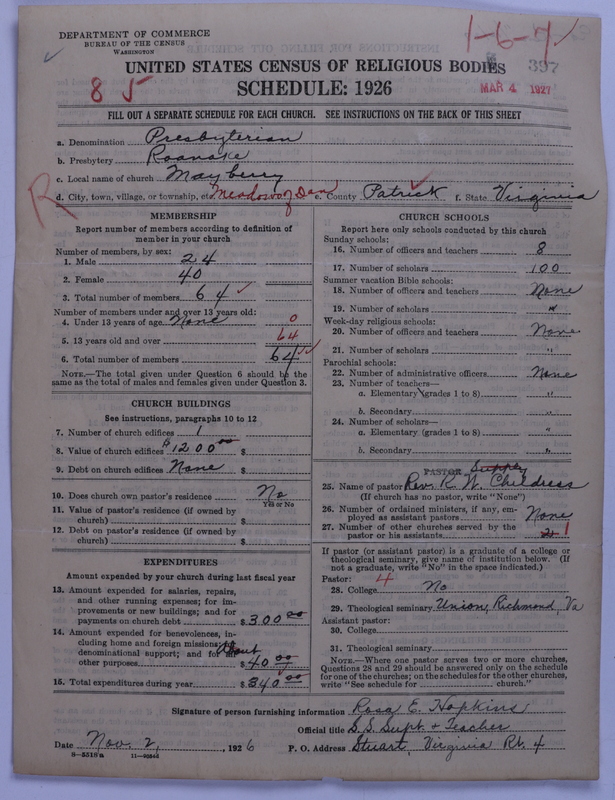 DEPARTMENT OF COMMERCE
BUREAU OF THE CENSUS
WASHINGTON
1-6-7
397
UNITED STATES CENSUS OF RELIGIOUS BODIES
8 5
SCHEDULE: 1926
MAR 4 1927
FILL OUT A SEPARATE SCHEDULE FOR EACH CHURCH. SEE INSTRUCTIONS ON THE BACK OF THIS SHEET
a. Denomination Presbyterian
b. Presbytery Roanoke
c. Local name of church Mayberry
R
d. City, town, village, or township, etc. Meadows of Dan e. County Patrick f. State Virginia
MEMBERSHIP
Report number of members according to definition of
member in your church
Number of members, by sex:
1. Male 24
2. Female 40
3. Total number of members 64
Number of members under and over 13 years old:
4. Under 13 years of age None 0
5. 13 years old and over 64
6. Total number of members 64
NOTE.—The total given under Question 6 should be the
same as the total of males and females given under Question 3.
CHURCH BUILDINGS
See instructions, paragraphs 10 to 12
7. Number of church edifices 1
8. Value of church edifices $1200 00 $
9. Debt on church edifices None $
10. Does church own pastor's residence No
Yes or No
11. Value of pastor's residence (if owned by
church) $
12. Debt on pastor's residence (if owned by
church) $
EXPENDITURES
Amount expended by your church during last fiscal year
13. Amount expended for salaries, repairs,
and other running expenses; for im-
provements or new buildings; and for
payments on church debt $ 300 00
14. Amount expended for benevolences, in-
cluding home and foreign missions; to
denominational support; and for all About
other purposes $ 40 00
15. Total expenditures during year $ 340 00
CHURCH SCHOOLS
Report here only schools conducted by this church
Sunday schools:
16. Number of officers and teachers 8
17. Number of scholars 100
Summer vacation Bible schools:
18. Number of officers and teachers None
19. Number of scholars "
Week-day religious schools:
20. Number of officers and teachers None
21. Number of scholars "
Parochial schools:
22. Number of administrative officers None
23. Number of teachers—
a. Elementary (grades 1 to 8) "
b. Secondary "
24. Number of scholars—
a. Elementary (grades 1 to 8) "
b. Secondary "
PASTOR Supply
25. Name of pastor Rev. R. W. Childress
(If church has no pastor, write "None")
26. Number of ordained ministers, if any, em-
ployed as assistant pastors None
27. Number of other churches served by the
pastor or his assistants 2 1
If pastor (or assistant pastor) is a graduate of a college or
theological seminary, give name of institution below. (If
not a graduate, write "No" in the space indicated.)
Pastor: 4
28. College No
29. Theological seminary Union, Richmond, Va
Assistant pastor:
30. College
31. Theological seminary
NOTE.—Where one pastor serves two or more churches,
Questions 28 and 29 should be answered only on the schedule
for one of the churches; on the schedules for the other churches,
write "See schedule for church."
Signature of person furnishing information Rosa E. Hopkins
Official title S.S. Supt. + Teacher
Date Nov. 2, , 1926 P. O. Address Stuart, Virginia Rt. 4
8—5516a